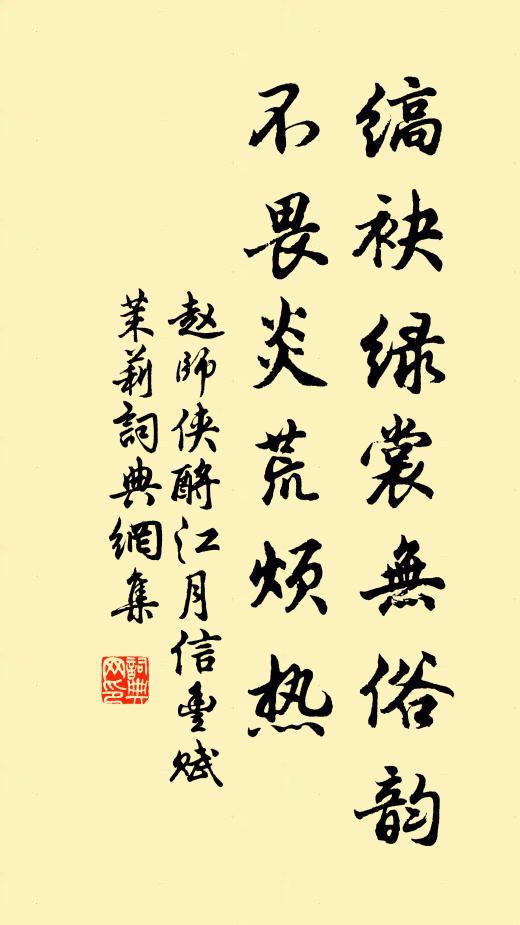 缟袂绿裳無俗韵
不畏炎荒烦热
赵師侠酹江月信豐赋
茉莉詞典網集
詞典网印